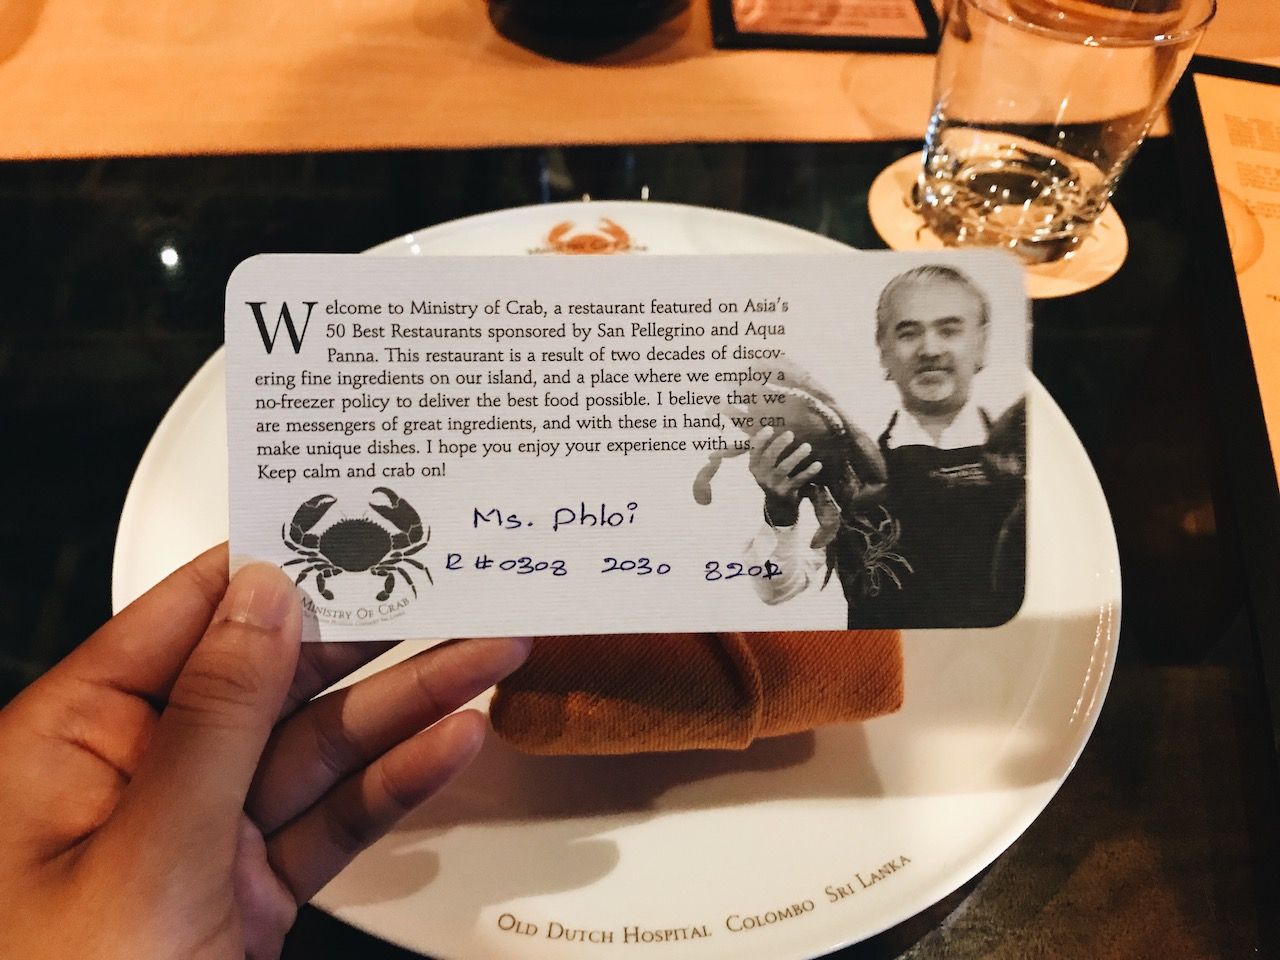 Welcome to Ministry of Crab, a restaurant featured on Asia's
50 Best Restaurants sponsored by San Pellegrino and Aqua
Panna. This restaurant is a result of two decades of discov-
ering fine ingredients on our island, and a place where we employ a
no-freezer policy to deliver the best food possible. I believe that we
are messengers of great ingredients, and with these in hand, we can
make unique dishes. I hope you enjoy your experience with us.
Keep calm and crab on!
Ms. Phloi
R #0303 2030
MINISTRY OF CRAB
OLD DUTCH HOSPITAL COLOMBO SRI LANKA